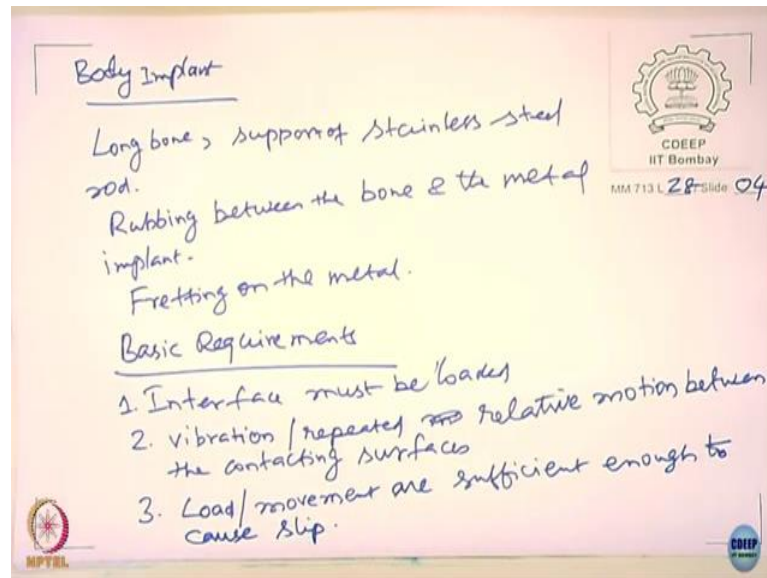 Body Implant
Long bone, support of stainless steel
rod.
Rubbing between the bone & the metal
implant.
Fretting on the metal.
Basic Requirements
1. Interface must be loaded
2. vibration / repeated relative motion between
the contacting surfaces
3. Load / movement are sufficient enough to
cause slip.
CDEEP
IT Bombay
MM 713 L 28 Slide 04
NPTEL
CDEEP
IIT BOMBAY